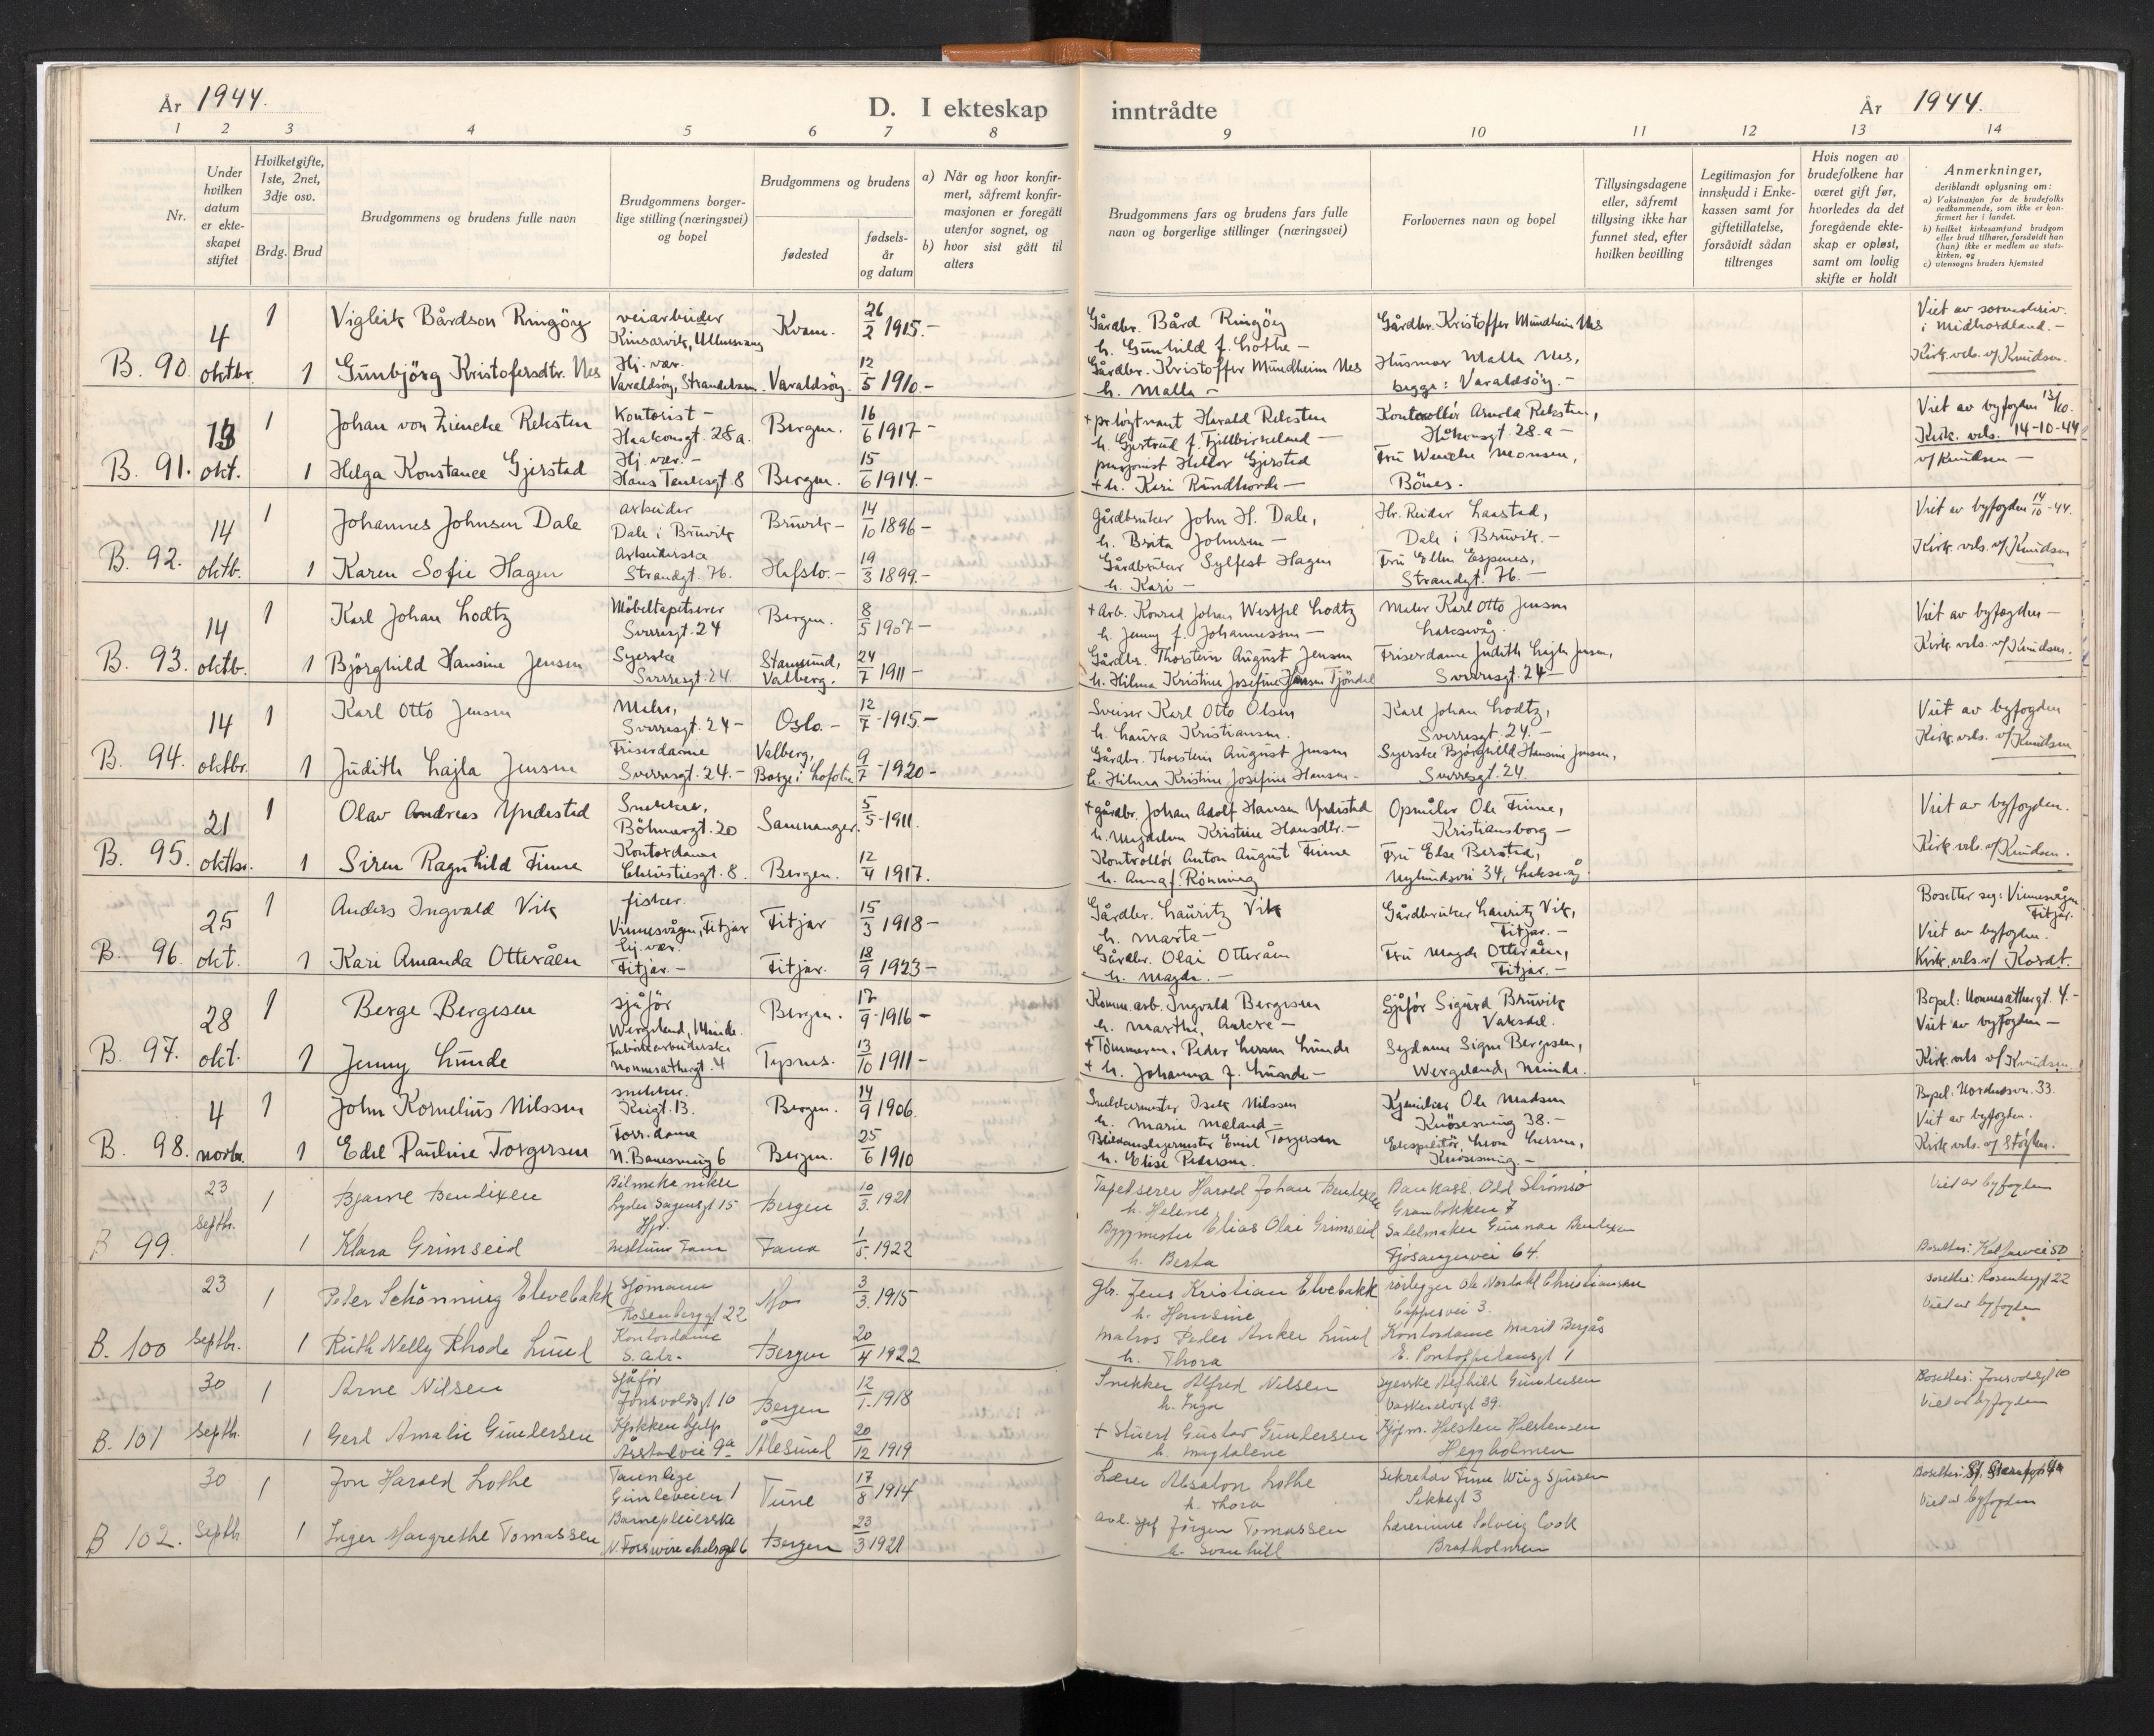 År 1944.
D. I ekteskap
inntrådte
År 1944.
1 2 3 4 5 6 7 8
9 10 11 12 13 14
Nr.
Under
hvilken
datum
er ekte-
skapet
stiftet
Hvilket gifte,
1ste, 2net,
3dje osv.
Brdg. Brud
Brudgommens og brudens fulle navn
Brudgommens borger-
lige stilling (næringsvei)
og bopel
Brudgommens og brudens
fødested
fødsels-
år
og datum
a) Når og hvor konfir-
mert, såfremt konfir-
masjonen er foregått
utenfor sognet, og
b) hvor sist gått til
alters
Brudgommens fars og brudens fars fulle
navn og borgerlige stillinger (næringsvei)
Forlovernes navn og bopel
Tillysingsdagene
eller, såfremt
tillysing ikke har
funnet sted, efter
hvilken bevilling
Legitimasjon for
innskudd i Enke-
kassen samt for
giftetillatelse,
forsåvidt sådan
tiltrenges
Hvis nogen av
brudefolkene har
været gift før,
hvorledes da det
foregående ekte-
skap er opløst,
samt om lovlig
skifte er holdt
Anmerkninger,
deriblandt oplysning om:
a) Vaksinasjon for de brudefolks
vedkommende, som ikke er kon-
firmert her i landet.
b) hvilket kirkesamfund brudgom
eller brud tilhører, forsåvidt han
(hun) ikke er medlem av stats-
kirken, og
c) utensogns bruders hjemsted
B. 90. 4 oktbr.
1 Vigleik Bårdson Ringöy
veiarbeider
Kinsarvik, Ullensvang
Kvam. 26/2 1915.-
Gårdbr. Bård Ringöy
h. Gunhild f. Lothe -
Gårdbr. Kristoffer Mundheim Nes
1 Gunbjörg Kristofersdtr. Nes
Hj. vær.
Varaldsöy, Strandebarm.
Varaldsöy. 12/5 1910-
Gårdbr. Kristoffer Mundheim Nes
h. Malla -
Husmor Malla Nes,
begge: Varaldsöy. -
Viet av sorenskriv.
i Midhordland. -
Kirk. vels. v/ Knudsen.
B. 91. 13 okt.
1 Johan von Zincke Reksten
Kontorist -
Haakonsgt. 28a.
Bergen. 16/6 1917 -
Harald Reksten
h. Gjertrud f. Fjellbirkeland -
Kontrollör Arnold Reksten,
Håkonsgt 28.a -
1 Helga Konstance Gjerstad
Hj. vær. -
Hans Tanksgt. 8
Bergen. 15/6 1914.-
pensjonist Gjerstad
+ h. Kari Rundhovde -
Fru Wenche Monsen,
Bönes.
Viet av byfogden 13/10.
Kirk. vels. 14-10-44
v/ Knudsen -
B. 92. 14 oktb.
1 Johannes Johnsen Dale
arbeider
Dale i Bruvik
Bruvik - 14/10 1896-
Gårdbruker John H. Dale,
h. Brita Johnsen -
Hr. Reidar Laastad,
Dale i Bruvik. -
1 Karen Sofie Hagen
Arbeiderske
Strandgt. 76.
Hafslo. - 19/3 1899.-
Gårdbruker Sylfest Hagen
h. Kari -
Fru Ellen Espenes,
Strandgt. 76. -
Viet av byfogden 14/10 -44.
Kirk. vels. v/ Knudsen
B. 93. 14 oktb.
1 Karl Johan Lodtz
Möbeltapetserer
Sverresgt. 24
Bergen. 8/5 1907 -
+ Arb. Konrad Johan Westfel Lodtz
h. Jenny f. Johannessen -
Maler Karl Otto Jensen
Laksevåg.
1 Björghild Hansine Jensen
Syerske
Sverresgt. 24.
Stamsund,
Valberg. 24/7 1911 -
Gårdbr. Thorstein August Jensen
h. Hilma Kristine Josefine Tjöndal
Friserdame Judith Lajla Jensen,
Sverresgt. 24 -
Viet av byfogden -
Kirk. vels. v/ Knudsen.
B. 94. 14 oktbr.
1 Karl Otto Jensen
Maler,
Sverresgt. 24 -
Oslo. - 12/7 - 1915 -
Sveiser Karl Otto Olsen
h. Laura Kristiansen.
Karl Johan Lodtz,
Sverresgt. 24. -
1 Judith Lajla Jensen
Friserdame
Sverresgt. 24. -
Valberg,
Borge i Lofoten 9/7 - 1920 -
Gårdbr. Thorstein August Jensen
h. Hilma Kristine Josefine Hansen -
Syerske Björghild Hansine Jensen,
Sverresgt. 24.
Viet av byfogden
Kirk. vels. v/ Knudsen
B. 95. 21 oktbr.
1 Olav Andreas Yndestad
Snekker,
Böhmergt. 20
Samnanger. 5/5 - 1911.
+ gårdbr. Johan Adolf Hansen Yndestad
h. Magdalena Kristine Hansdtr. -
Opmåler Ole Finne,
Kristiansborg -
1 Siren Ragnhild Finne
Kontordame
Christiesgt. 8.
Bergen. 12/4 1917.
Kontrollör Anton August Finne
h. Anna f. Rönning
Fru Else Berstad,
Nylundsvei 34, Laksevåg
Viet av byfogden.
Kirk. vels. v/ Knudsen.
B. 96. 25 okt.
1 Anders Ingvald Vik
fisker.
Vinnesvågen, Fitjar
Fitjar 15/3 1918 -
Gårdbr. Lauritz Vik
h. Marta -
Gårdbruker Lauritz Vik,
Fitjar. -
1 Kari Amanda Otteråen
hj. vær.
Fitjar. -
Fitjar. 18/9 1923 -
Gårdbr. Olai Otteråen
h. Magda. -
Fru Magda Otteråen,
Fitjar. -
Bosetter seg: Vinnesvågen
Fitjar.
Viet av byfogden.
Kirk. vels. v/ Kordt.
B. 97. 28 okt.
1 Berge Bergesen
sjåför
Wergeland, Minde.
Bergen. 12/9 - 1916 -
Komm. arb. Ingvald Bergesen
h. Marthe, -
Sjåför Sigurd Bruvik
Vaksdal.
1 Jenny Lunde
Fabrikkarbeiderske
Nonnesæthergt. 4
Tysnes. 13/10 1911 -
+ Tömmerm. Peder Larsen Lunde
+ h. Johanna f. Lunde -
Sydame Signe Bergesen,
Wergeland, Minde.
Bopel: Nonnesæthergt. 4. -
Viet av byfogden -
Kirk. vels v/ Knudsen
B. 98. 4 novbr.
1 John Kornelius Nilssen
snekker.
Krigt. 13.
Bergen. 14/9 1906
Snekkermester Isak Nilssen
h. Marie Mæland -
Kjemiker Ole Madsen
Knösesmug 38. -
1 Edel Pauline Torgersen
Forr. dame
N. Banesmug 6
Bergen 25/6 1910
Blikkenslagermester Emil Torgersen
h. Elise Pedersen.
Ekspeditör Larsen,
Knösesmug. -
Bopel: Nordnesvn. 33.
Viet av byfogden.
Kirk. vels. v/ Stöylen.
B 99. 23 Septbr.
1 Bjarne Bendixen
Bilmekaniker
Lyder Sagensgt 15
Bergen 10/3 1921
Tapetserer Harald Johan Bendixen
h. Helene
Bankass. Odd Strömsö
Granbakken 7
1 Klara Grimseid
Hpr.
Nesttun Fana
Fana 1/5 1922
Byggmester Elias Olai Grimseid
h. Berta
Salelmaker Gunnar Bendixen
Fjösangervei 64.
Viet av byfogden
Bosettes: Kalfarvei 50
B. 100 23 Septbr.
1 Peter Schönning Elvebakk
Sjömann
Rosenberggt 22
Mo 3/3 1915
gbr. Jens Kristian Elvebakk
h. Hansine
rörlegger Ole Nordahl Christiansen
Cappesvei 3.
1 Ruth Nelly Rhode Lund
Kontordame
S. adr.
Bergen 20/4 1922
Matros Peder Anker Lund
h. Thora
Kontordame Marit Bergås
E. Pontoppidansgt 1
Bosettes: Rosenberggt 22
Viet av byfogden
B. 101 30 Septbr.
1 Arne Nilsen
Sjåför
Jonsvoldsgt 10
Bergen 12/1 1918
Snekker Alfred Nilsen
h. Inga
Syerske Aleghild Gundersen
Vaskerelvsgt 39.
1 Gerd Amalie Gundersen
Kjökkenhjelp
Årstadvei 9a
Ålesund 20/12 1919
+ Stuert Gustav Gundersen
h. Magdalene
Kjöpm. Halsten Halstensen
Heggholmen
Bosettes: Jonsvoldsgt 10
Viet av byfogden
B 102. 30 Septbr
1 Jon Harald Lothe
Tannlege
Gunleveien 1
Tune 17/8 1914
Lærer Absalon Lothe
h. Thora
Sekretær Finn Wiig Sjursen
Sekkegt 3
1 Inger Margrethe Tomassen
Barnepleierske
Bergen 23/3 1921
avd. sjef Jörgen Tomassen
h. Svanhill
Lærerinne Solveig Cook
Bratholmen
Bosettes:
Viet av byfogden